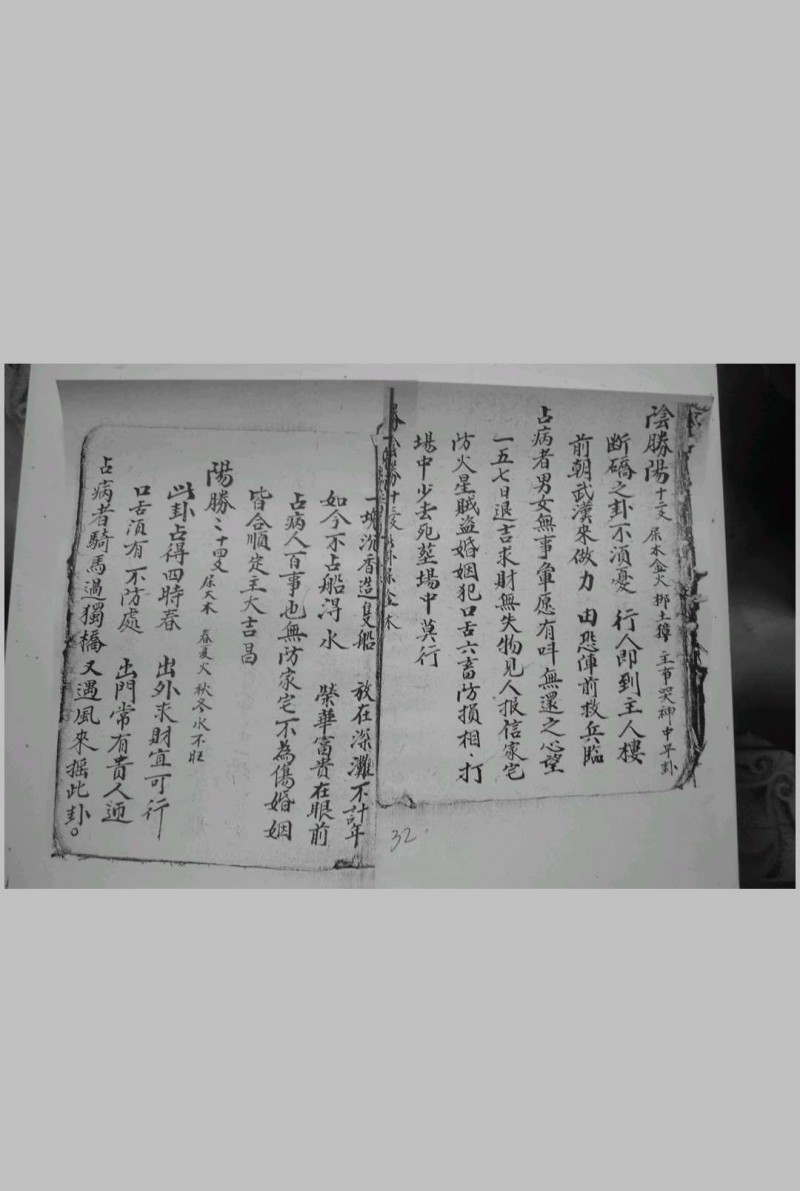 陰勝陽十二爻 屎木金火 梆土獐 主事哭神中平卦
断磚之卦不須憂 行人即到主人樓
前朝武漢來做力 由恐陣前救兵臨
占病者男女無事 愿有呌無還之心望
一五七日退吉求財無失物見人报信家宅
防火星賊盗婚姻犯口舌六畜防損相·打
場中少去死墓場中莫行
32
陰勝十三爻 金木
一塊沉香造隻船 放在深灘不計年
如今不占船淂水 榮華富貴在眼前
占病人百事也無防家宅不為傷婚姻
皆合順定主大吉昌
陽勝〻十四爻 屎大木 春夏火 秋冬水不旺
此卦占得四時春 出外求財宜可行
口舌須有不防處 出門常有貴人迊
占病者騎馬過獨橋又遇風來摇此卦。